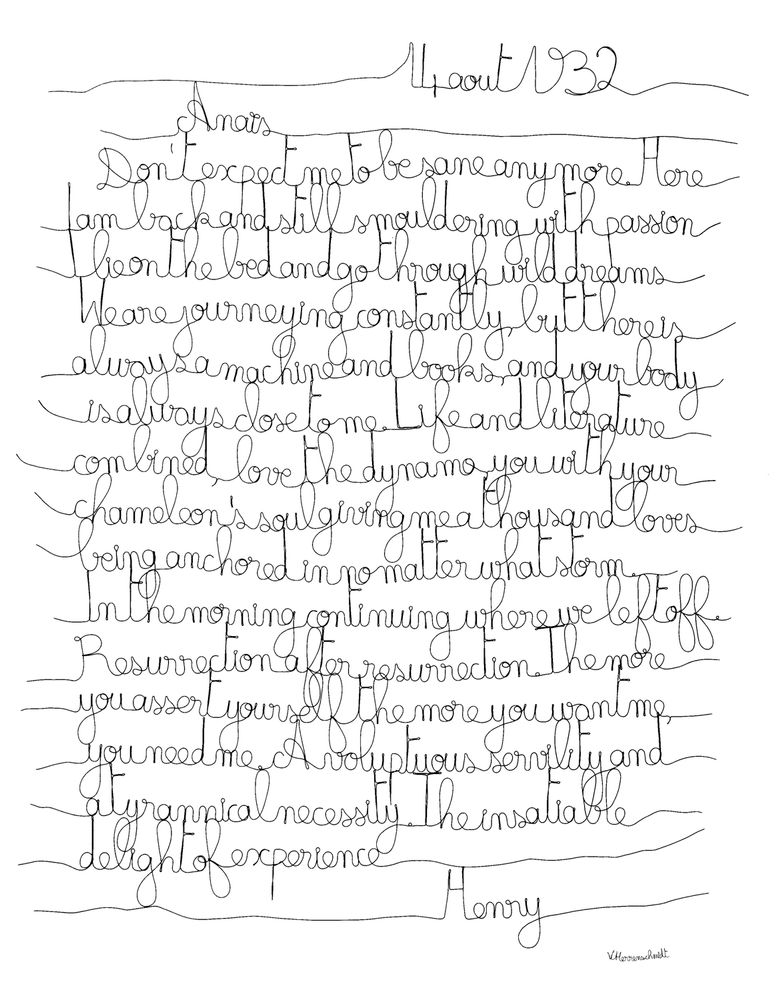 14 aout 1932
Anaïs
Don't expect me to be sane anymore. Here
I am back and still smouldering with passion
I lie on the bed and go through wild dreams
We are journeying constantly, but there is
always a machine and books, and your body
is always close to me. Life and literature
combined, love the dynamo, you with your
chameleon's soul giving me a thousand loves
being anchored in no matter what storm.
In the morning continuing where we left off.
Resurrection after resurrection. The more
you assert yourself the more you want me,
you need me. A voluptuous servility and
a tyrannical necessity. The insatiable
delight of experience
Henry
V.Herrenschmidt